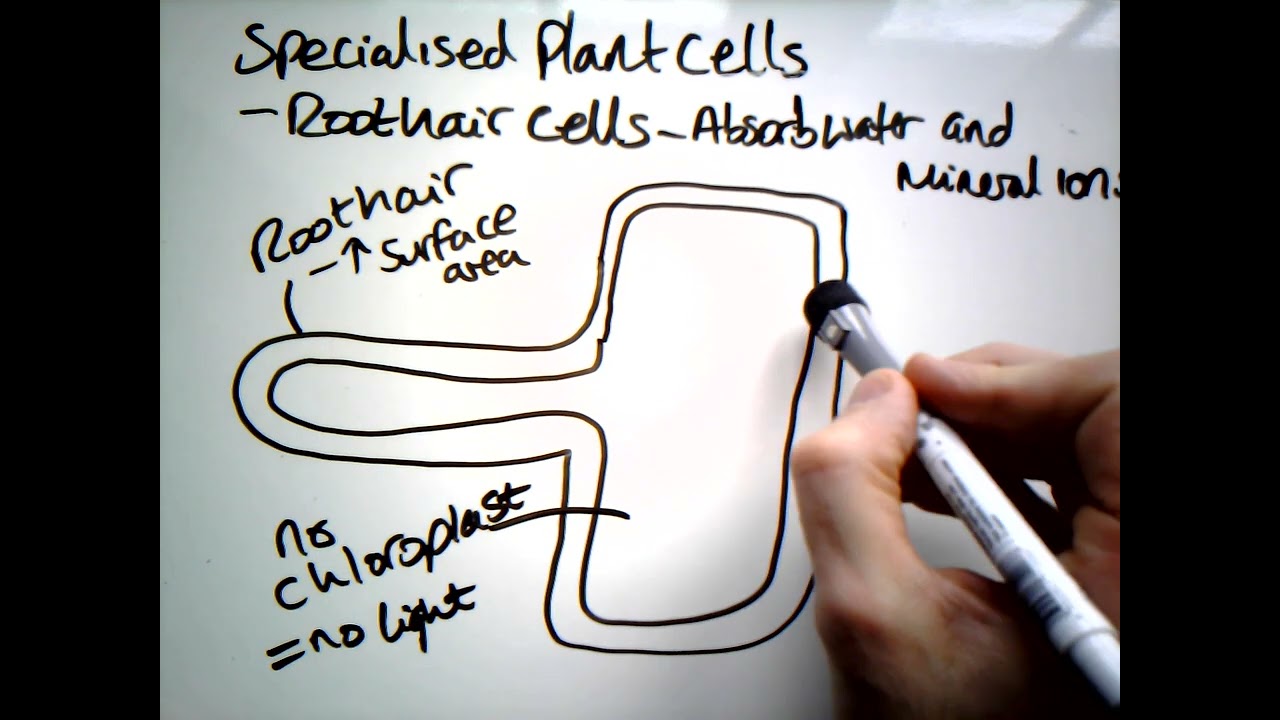 Specialised Plant Cells
- Root hair cells - Absorb water and
Mineral ions
Root hair
- ↑ surface
area
no
chloroplast
= no light